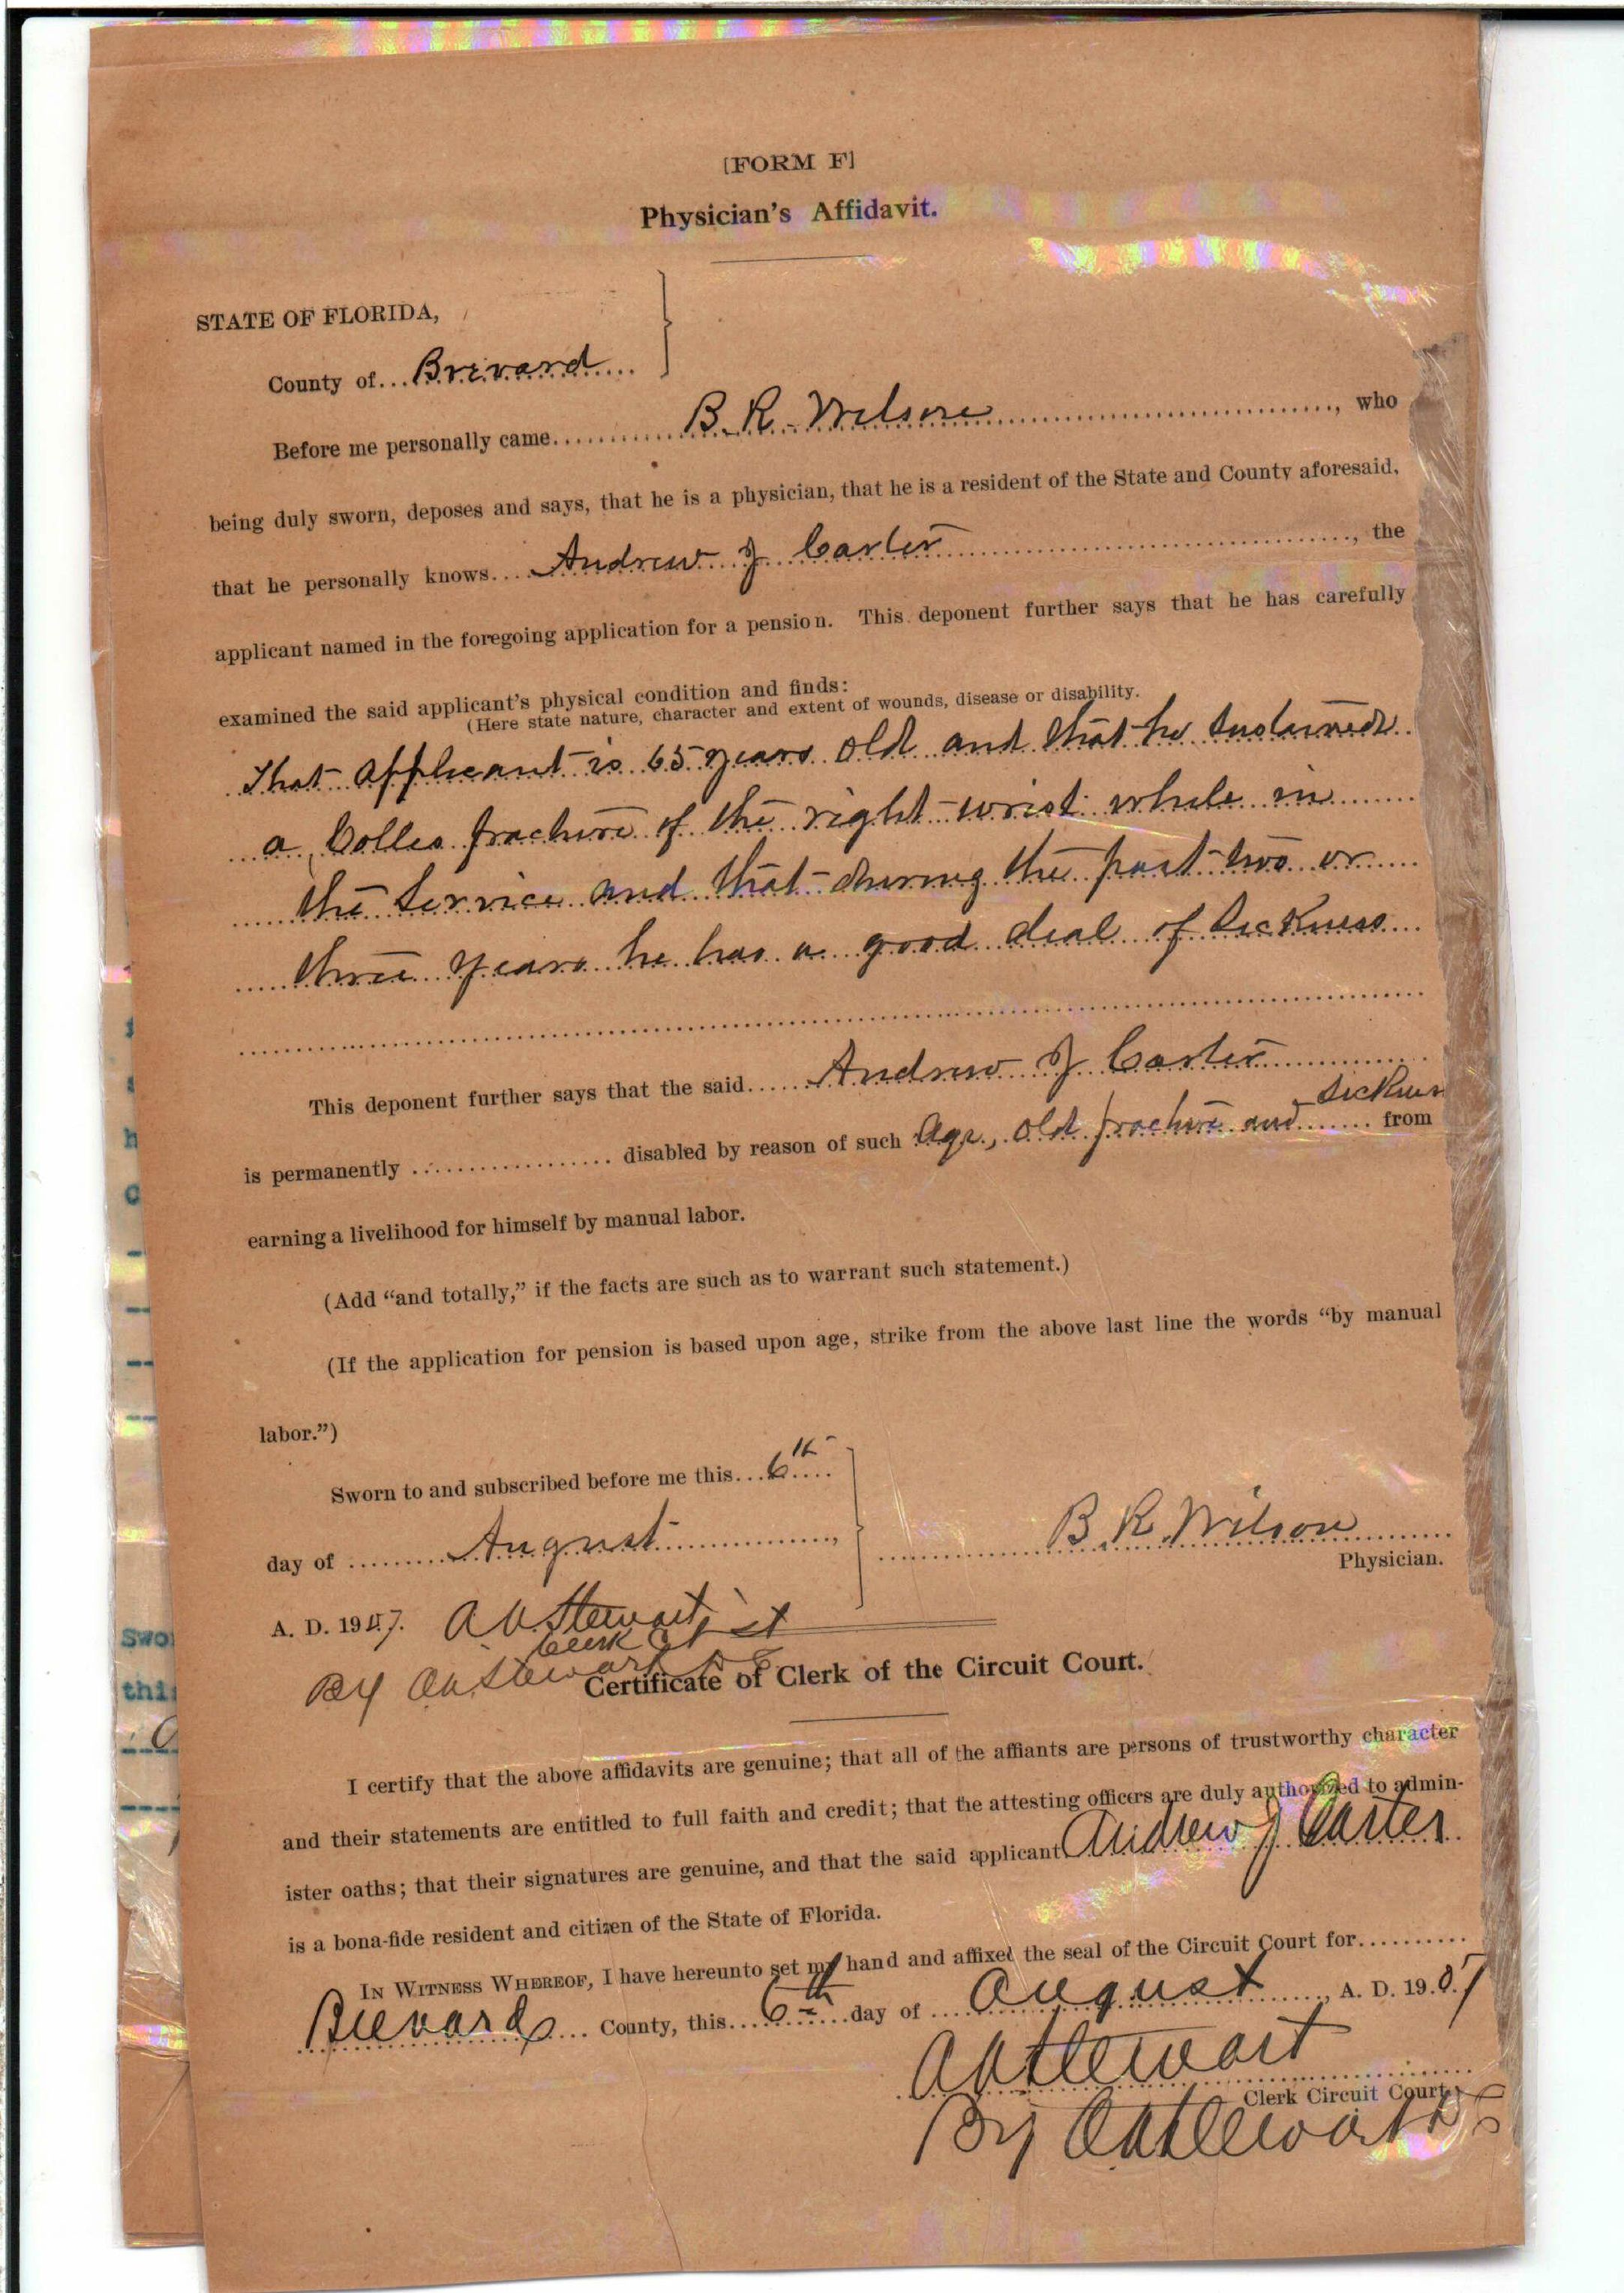 [FORM F]
Physician's Affidavit.
STATE OF FLORIDA,
County of... Brevard
Before me personally came B. R. Wilson, who
being duly sworn, deposes and says, that he is a physician, that he is a resident of the State and County aforesaid,
that he personally knows Andrew J Carter, the
applicant named in the foregoing application for a pension. This deponent further says that he has carefully
examined the said applicant's physical condition and finds:
(Here state nature, character and extent of wounds, disease or disability.
That applicant is 65 years old and that he sustained
a Colles fracture of the right wrist while in
the Service and that during the past two or
three years he has a good deal of sickness
This deponent further says that the said Andrew J Carter
is permanently .................. disabled by reason of such Age, old fracture and sickness from
earning a livelihood for himself by manual labor.
(Add "and totally," if the facts are such as to warrant such statement.)
(If the application for pension is based upon age, strike from the above last line the words "by manual
labor.")
Sworn to and subscribed before me this 6th
day of August,
B. R. Wilson
Physician.
A. D. 1907. A A Stewart
Clerk
By Stewart
Certificate of Clerk of the Circuit Court.
I certify that the above affidavits are genuine; that all of the affiants are persons of trustworthy character
and their statements are entitled to full faith and credit; that the attesting officers are duly authorized to admin-
ister oaths; that their signatures are genuine, and that the said applicant Andrew J Carter
is a bona-fide resident and citizen of the State of Florida.
IN WITNESS WHEREOF, I have hereunto set my hand and affixed the seal of the Circuit Court for
Brevard County, this 6th day of August, A. D. 1907
A A Stewart
Clerk Circuit Court
By Stewart
Swo
this